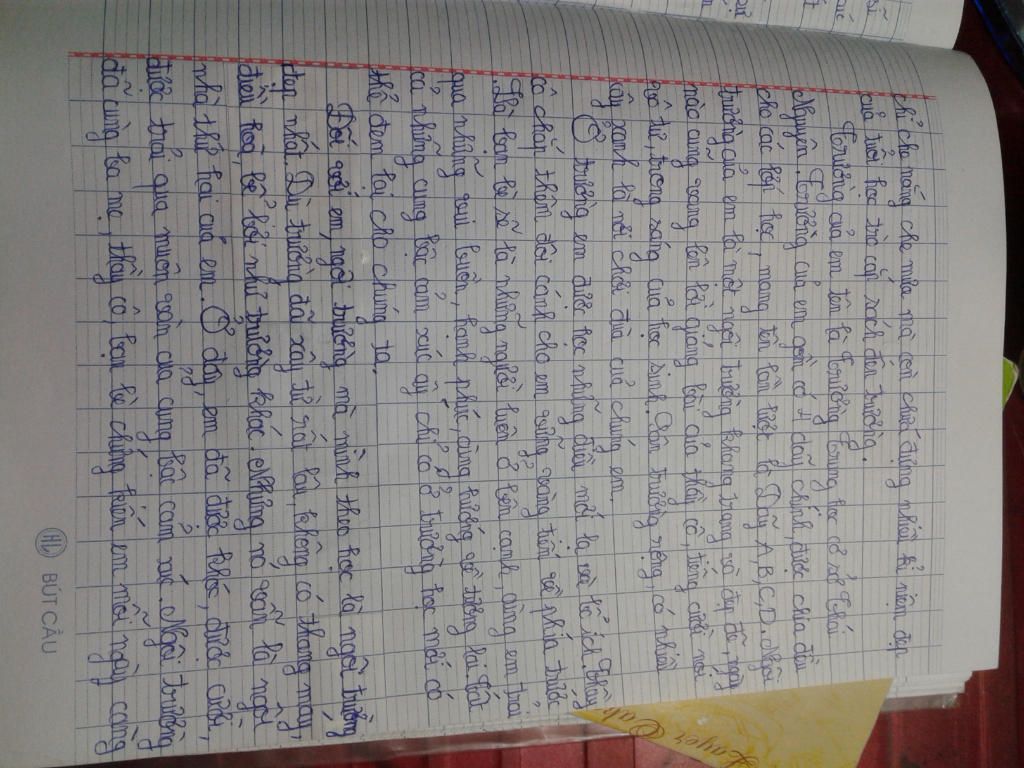 chỉ che nắng che mưa mà còn chứa đựng nhiều kỉ niệm đẹp
của tuổi học trò cắp sách đến trường.
Trường của em tên là Trường Trung học cơ sở Thái
Nguyên. Trường của em gồm có 4 dãy chính, được chia đều
cho các lớp học, mang tên lần lượt là Dãy A, B, C, D. Ngôi
trường của em là một ngôi trường khang trang và đẹp đẽ, ngày
nào cũng vang lên lời giảng bài của thầy cô, tiếng cười nói
ngô tư, trong sáng của học sinh. Sân trường rộng, có nhiều
cây xanh là nơi chơi đùa của chúng em.
Ở trường em được học những điều mới lạ và bổ ích. Thầy
cô chắp thêm đôi cánh cho em vững vàng tiến về phía trước
Thì bạn bè sẽ là những người luôn ở bên cạnh, cùng em trải
qua những vui buồn, hạnh phúc, cùng hướng về tương lai. Tất
cả những cung bậc cảm xúc ấy chỉ có ở trường học mới có
thể đem lại cho chúng ta.
Đối với em, ngôi trường mà mình theo học là ngôi trường
đẹp nhất. Dù trường đã xây từ rất lâu, không có thang máy,
điều hoà, bể bơi như trường khác. Nhưng nó vẫn là ngôi
nhà thứ hai của em. Ở đây, em đã được khóc, được cười,
được trải qua muôn vàn của cung bậc cảm xúc. Ngôi trường
đã cùng ba mẹ, thầy cô, bạn bè chứng kiến em mỗi ngày càng
HL BÚT CẦU